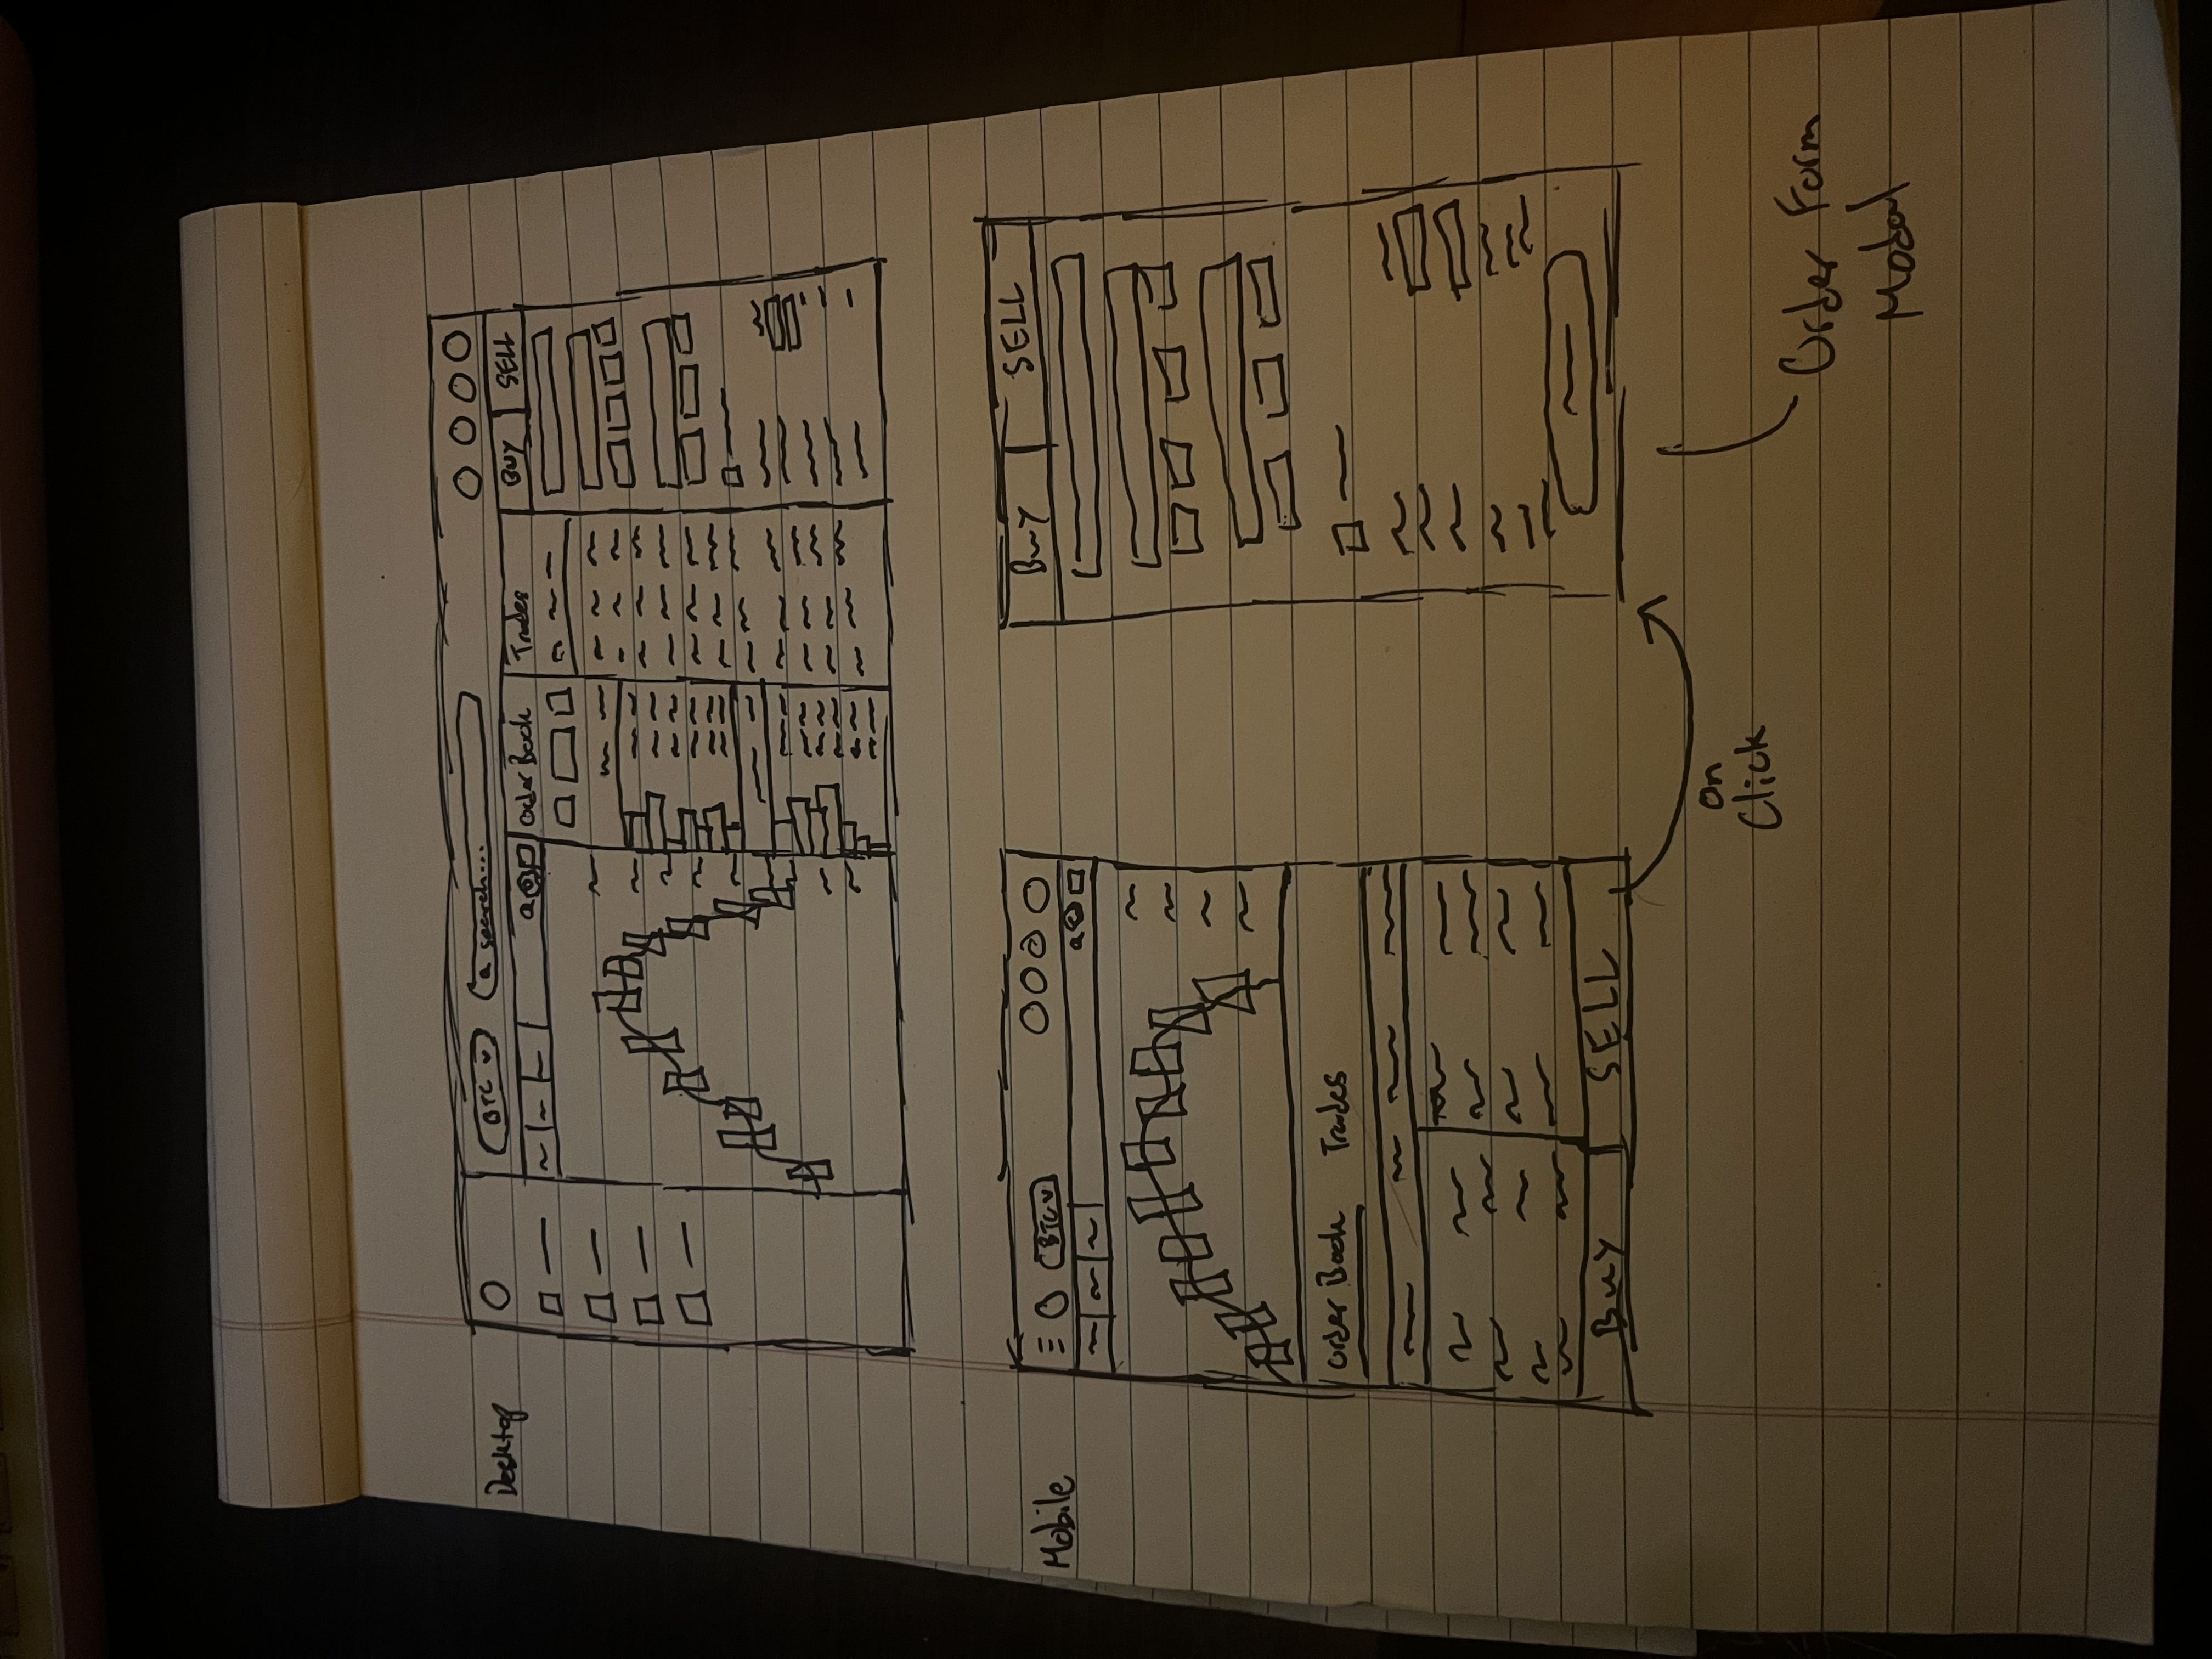 Desktop
BTC
search...
Order Book
Trades
BUY
SELL
Mobile
BTC
Order Book
Trades
Buy
SELL
Buy
SELL
On
Click
Order Form
Modal